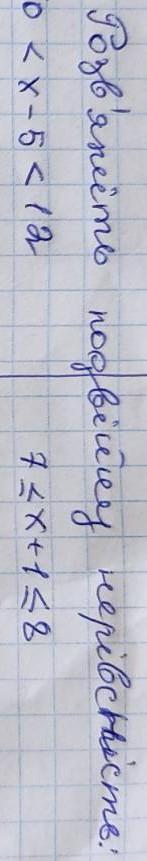 Розв'яжіть подвійну нерівність:
0 < x - 5 < 12 7 ≤ x + 1 ≤ 8